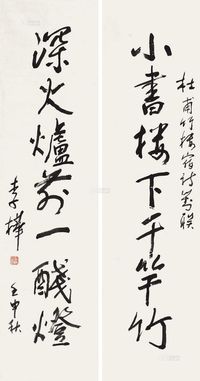 小書楼下千竿竹
杜甫竹楼宿诗写联
深火爐前一醆燈
李樺
壬申秋